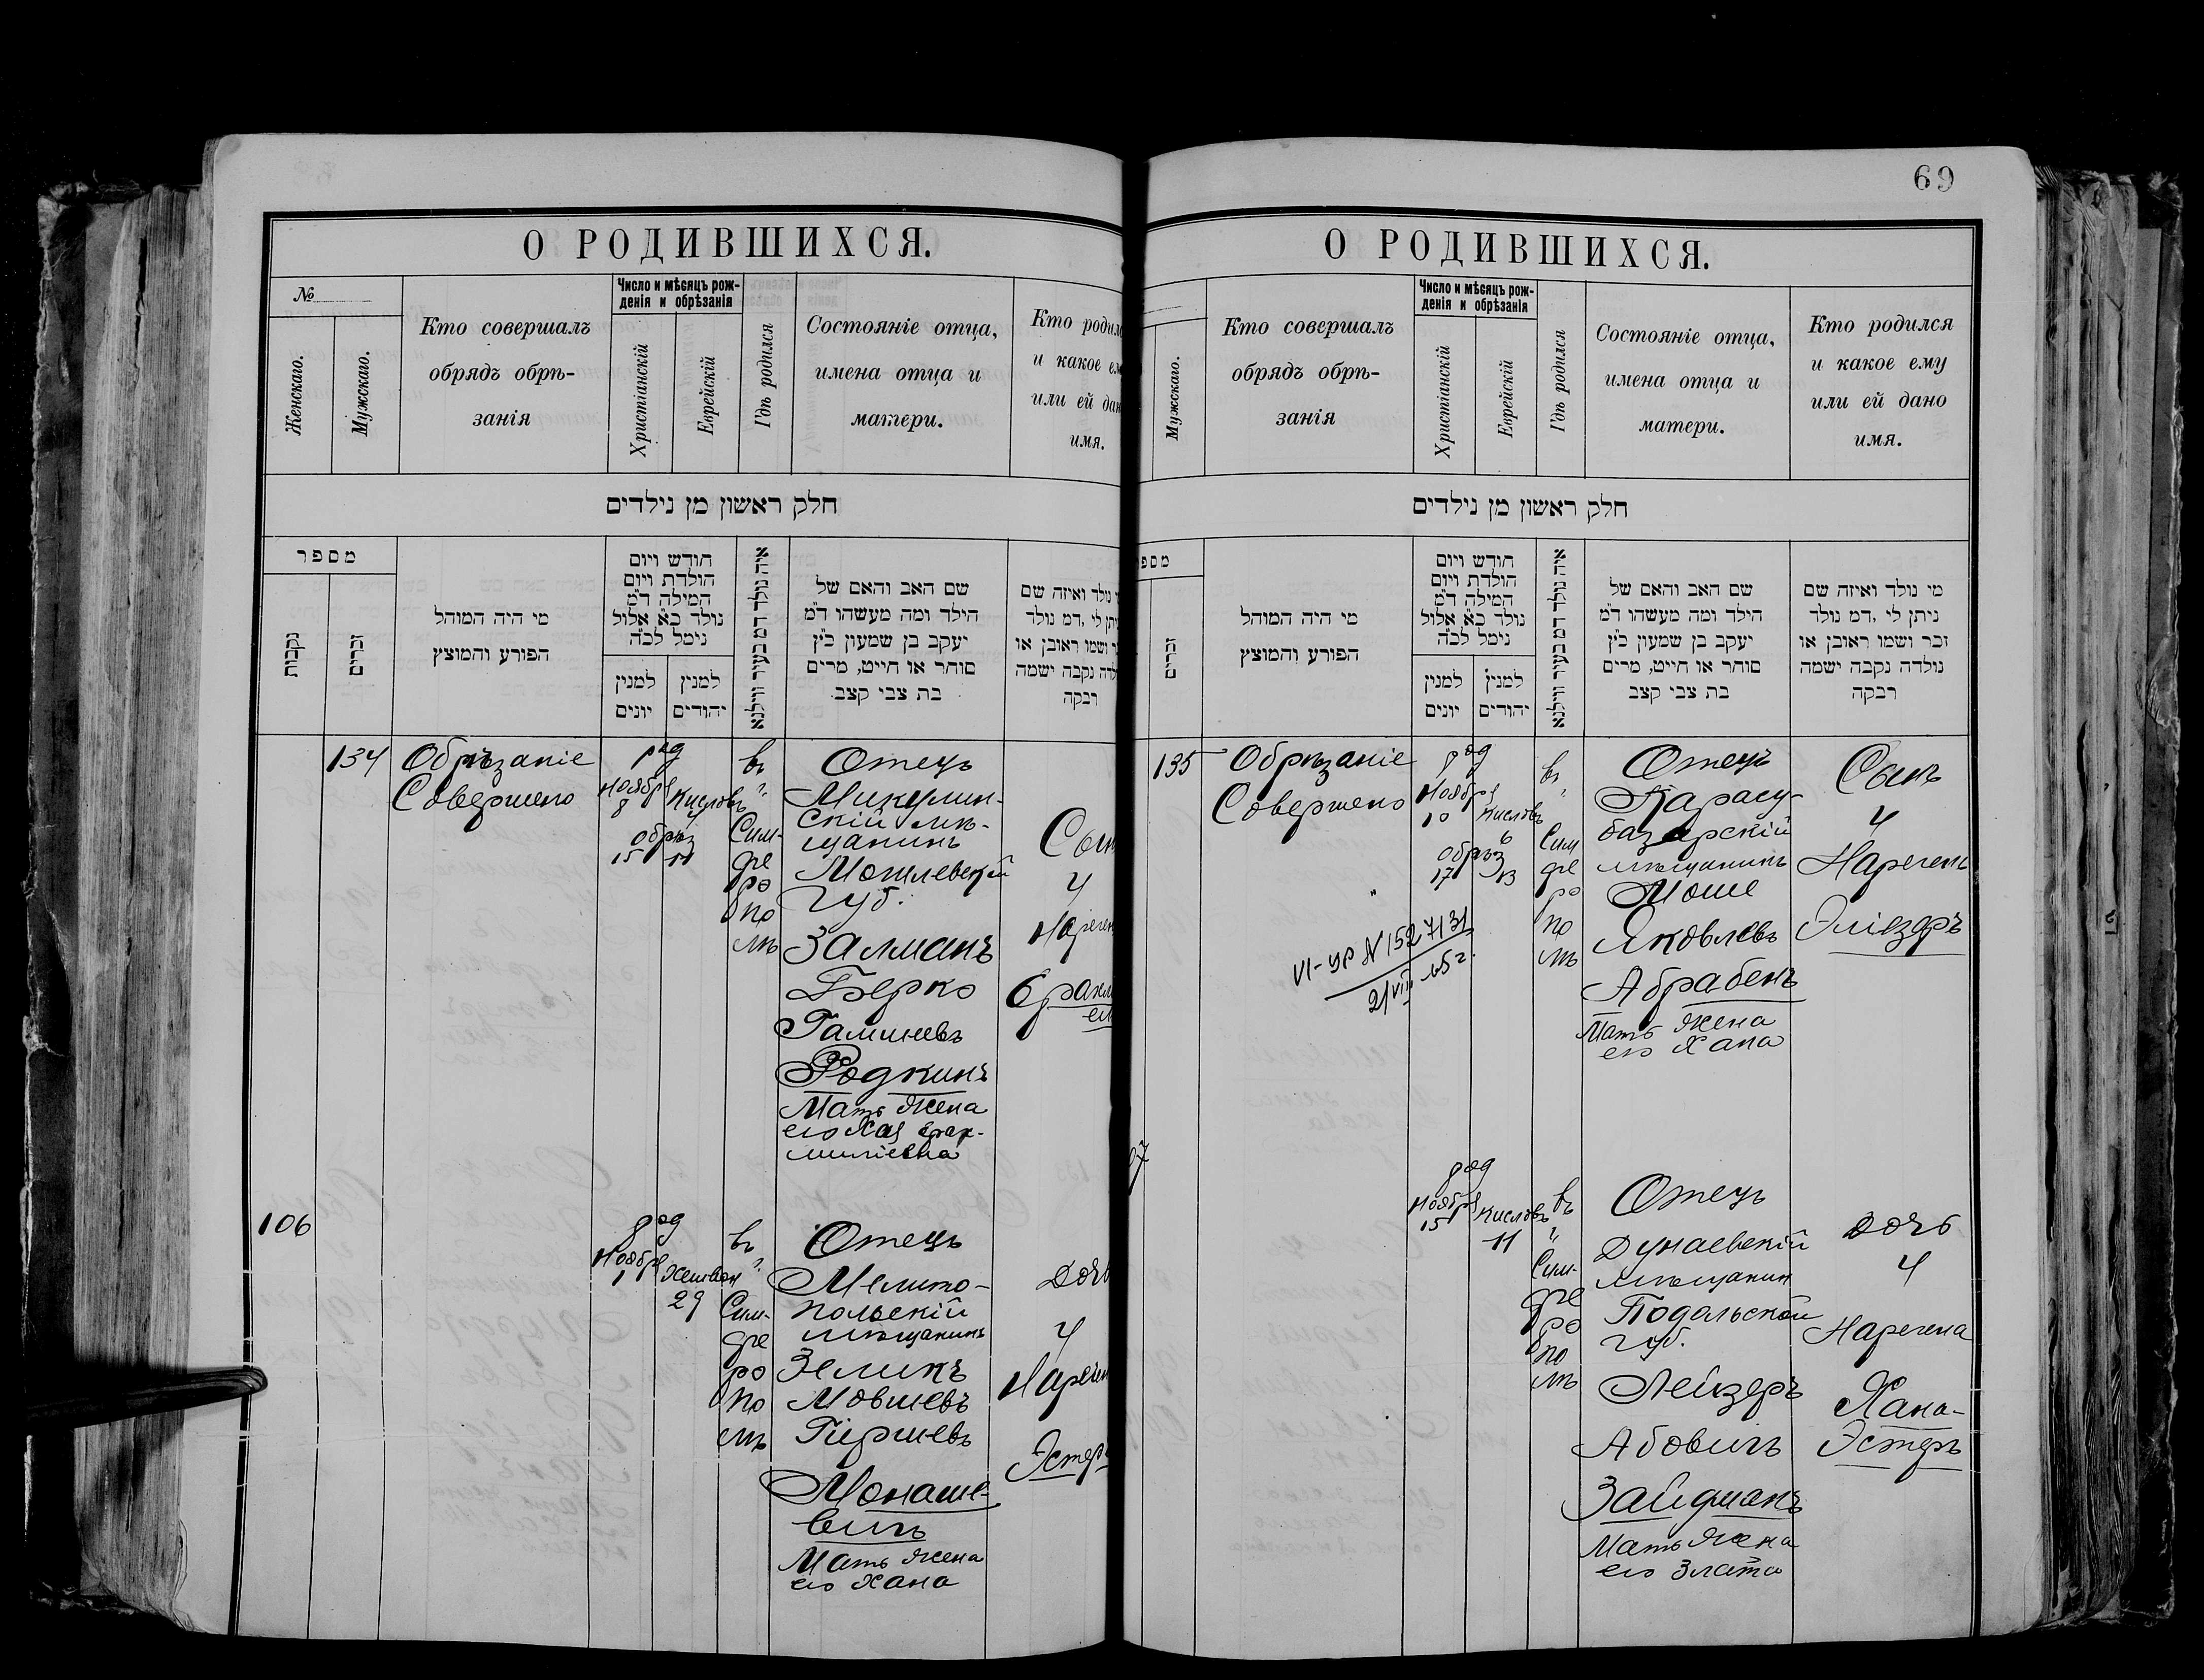 69
О РОДИВШИХСЯ.
№
Женскаго.
Мужскаго.
Кто совершалъ
обрядъ обрѣ-
занія
Число и мѣсяцъ рож-
денія и обрѣзанія
Христіанскій
Еврейскій
Гдѣ родился
Состояніе отца,
имена отца и
матери.
Кто родил
и какое ем
или ей дан
имя.
חלק ראשון מן נילדים
מספר
נקבות
זכרים
מי היה המוהל
הפורע והמוצץ
חודש ויום
הולדת ויום
המילה ד"מ
נולד כא אלול
נימל לכ"ה
למנין
יונים
למנין
יהודים
איה נולד דמ בעיר ווילנא
שם האב והאם של
הילד ומה מעשהו ד"מ
יעקב בן שמעון כ"ץ
סוחר או חייט, מרים
בת צבי קצב.
נולד ואיזה שם
יתן לי, דמ נולד
ושמו ראובן או
לדה נקבה ישמה
רבקה
134
Обрѣзаніе
Совершено
род
Ноября
8
Кислевъ
4
Обрѣз
15 11
въ
Сим-
фе
ро
по
лѣ
Отецъ
Микулин-
скій мѣ-
щанинъ
Могилевской
Губ.
Залманъ
Берко
Родкинъ
Мать жена
его Хая
106
род
Ноября
1
Хешван
29
въ
Сим-
фе
ро
по
лѣ
Отецъ
Мелито-
польскій
мѣщанинъ
Зеликъ
Мовшевъ
Гиршевъ
Монаше-
вичъ
Мать жена
его Хана
Сын
4
Наречен
Дочь
4
Наречен
Эстеръ
О РОДИВШИХСЯ.
Мужскаго.
Кто совершалъ
обрядъ обрѣ-
занія
Число и мѣсяцъ рож-
денія и обрѣзанія
Христіанскій
Еврейскій
Гдѣ родился
Состояніе отца,
имена отца и
матери.
Кто родился
и какое ему
или ей дано
имя.
חלק ראשון מן נילדים
מספ
זכרים
מי היה המוהל
הפורע והמוצץ
חודש ויום
הולדת ויום
המילה ד"מ
נולד כא אלול
נימל לכ"ה
למנין
יונים
למנין
יהודים
איה נולד דמ בעיר ווילנא
שם האב והאם של
הילד ומה מעשהו ד"מ
יעקב בן שמעון כ"ץ
סוחר או חייט, מרים
בת צבי קצב
מי נולד ואיזה שם
ניתן לי, דמ נולד
זכר ושמו ראובן או
נולדה נקבה ישמה
רבקה
135
Обрѣзаніе
Совершено
род
Ноября
10
Кислевъ
6
Обрѣз
17 13
въ
Сим
фе
ро
по
лѣ
Отецъ
Карасу-
базарскій
мѣщанинъ
Моше
Яковлевъ
Абрабенъ
Мать жена
его Хана
Сынъ
4
Нареченъ
Эліезеръ
VI-УР № 1527131
21/VIII-65 г.
07
род
Ноября
15
Кислевъ
11
въ
Сим-
фе
ро
по
лѣ
Отецъ
Дунаевскій
мѣщанин
Подольской
Губ.
Лейзеръ
Абовичъ
Зайфманъ
Мать жена
его Злата
Дочь
4
Наречена
Хана-
Эстеръ